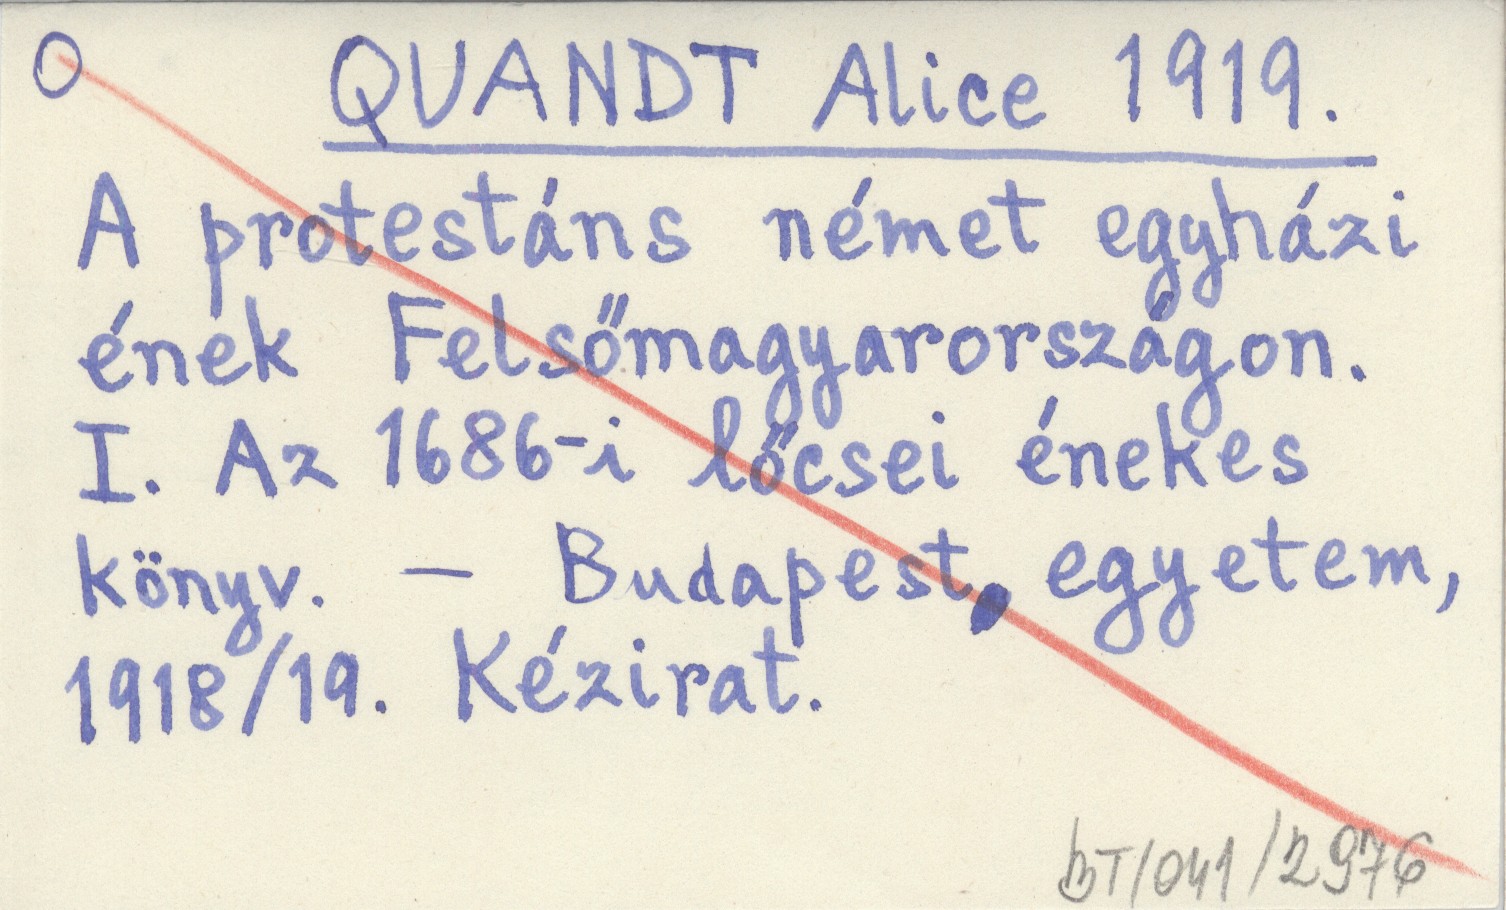 O QUANDT Alice 1919.
A protestáns német egyházi
ének Felsőmagyarországon.
I. Az 1686-i lőcsei énekes
könyv. — Budapest, egyetem,
1918/19. Kézirat.
BT/041/2976